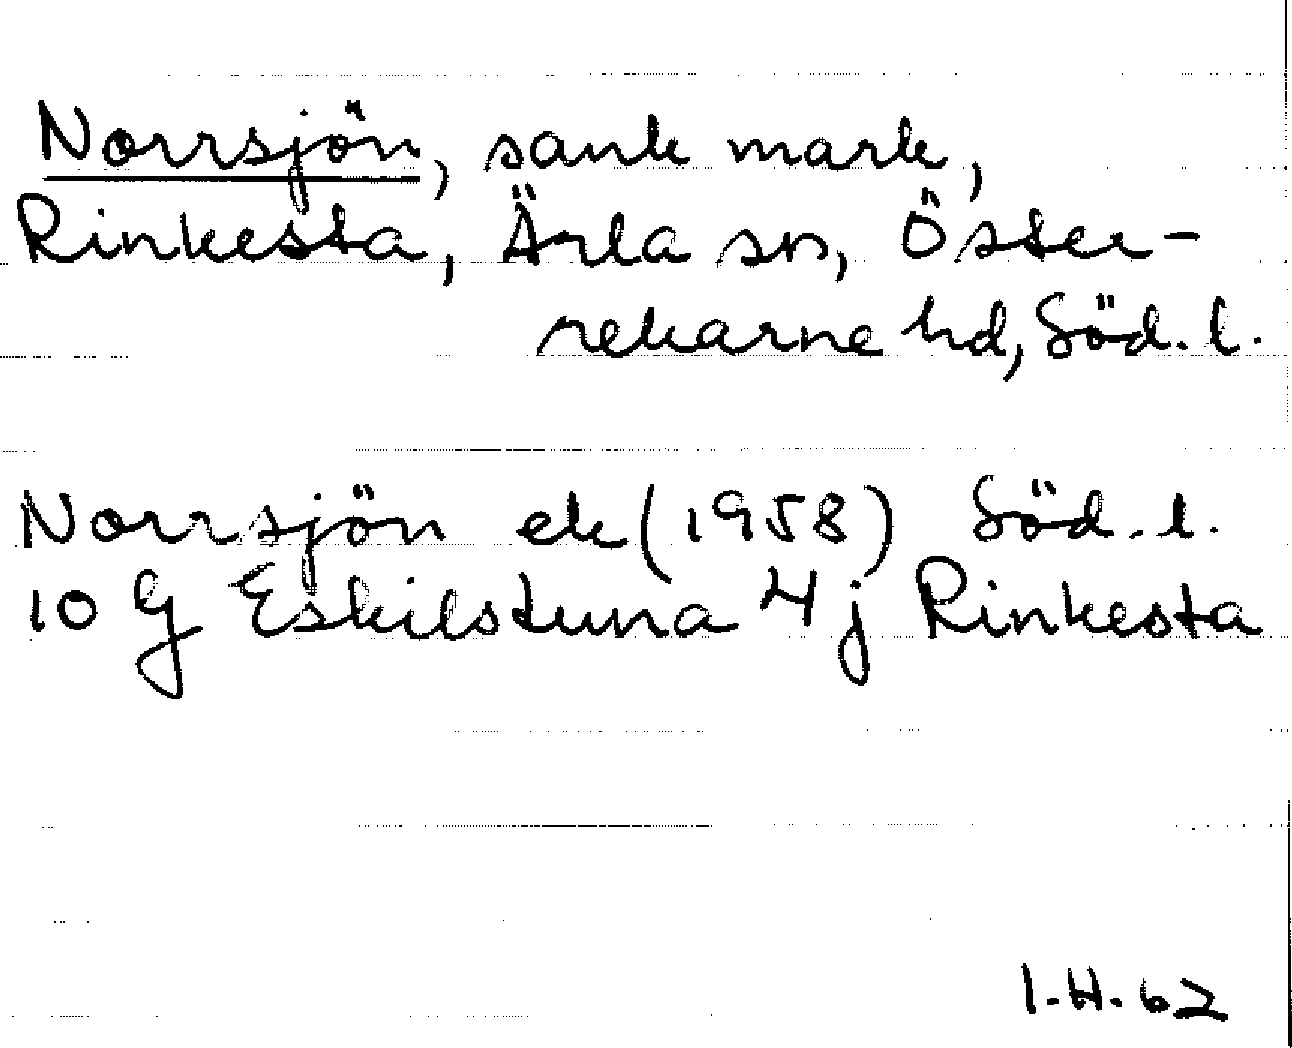 Norrsjön, sank mark,
Rinkesta, Ärla sn, Öster-
rekarne hd, Söd. l.
Norrsjön ek (1958) Söd. l.
10 G Eskilstuna 4 j Rinkesta
I.H. 62